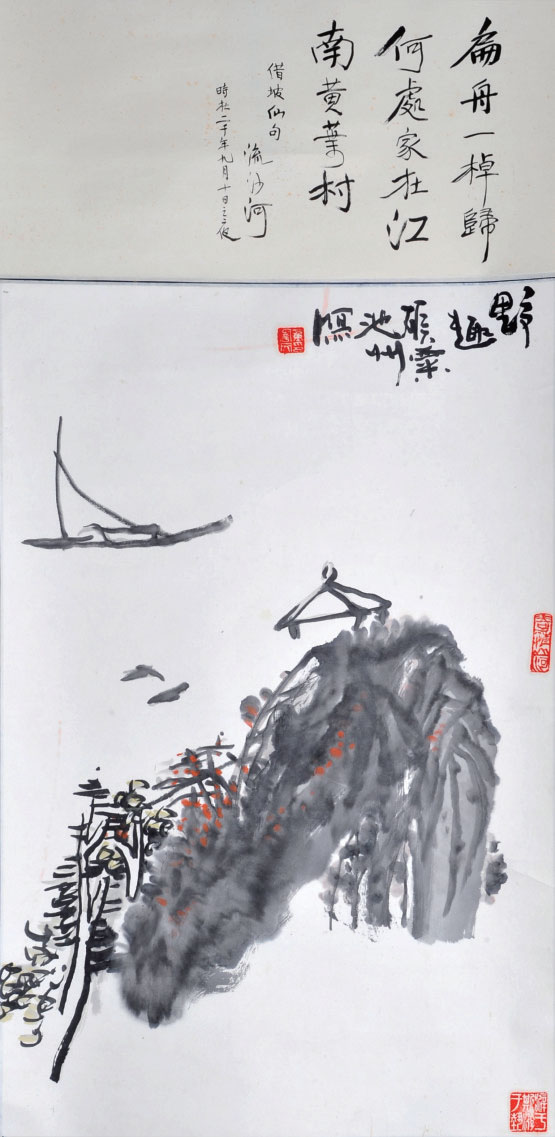 扁舟一棹歸
何處家在江
南黃葉村
借坡仙句
流沙河
時在二千年九月十日之夜
野趣
碩粟
池州
寫